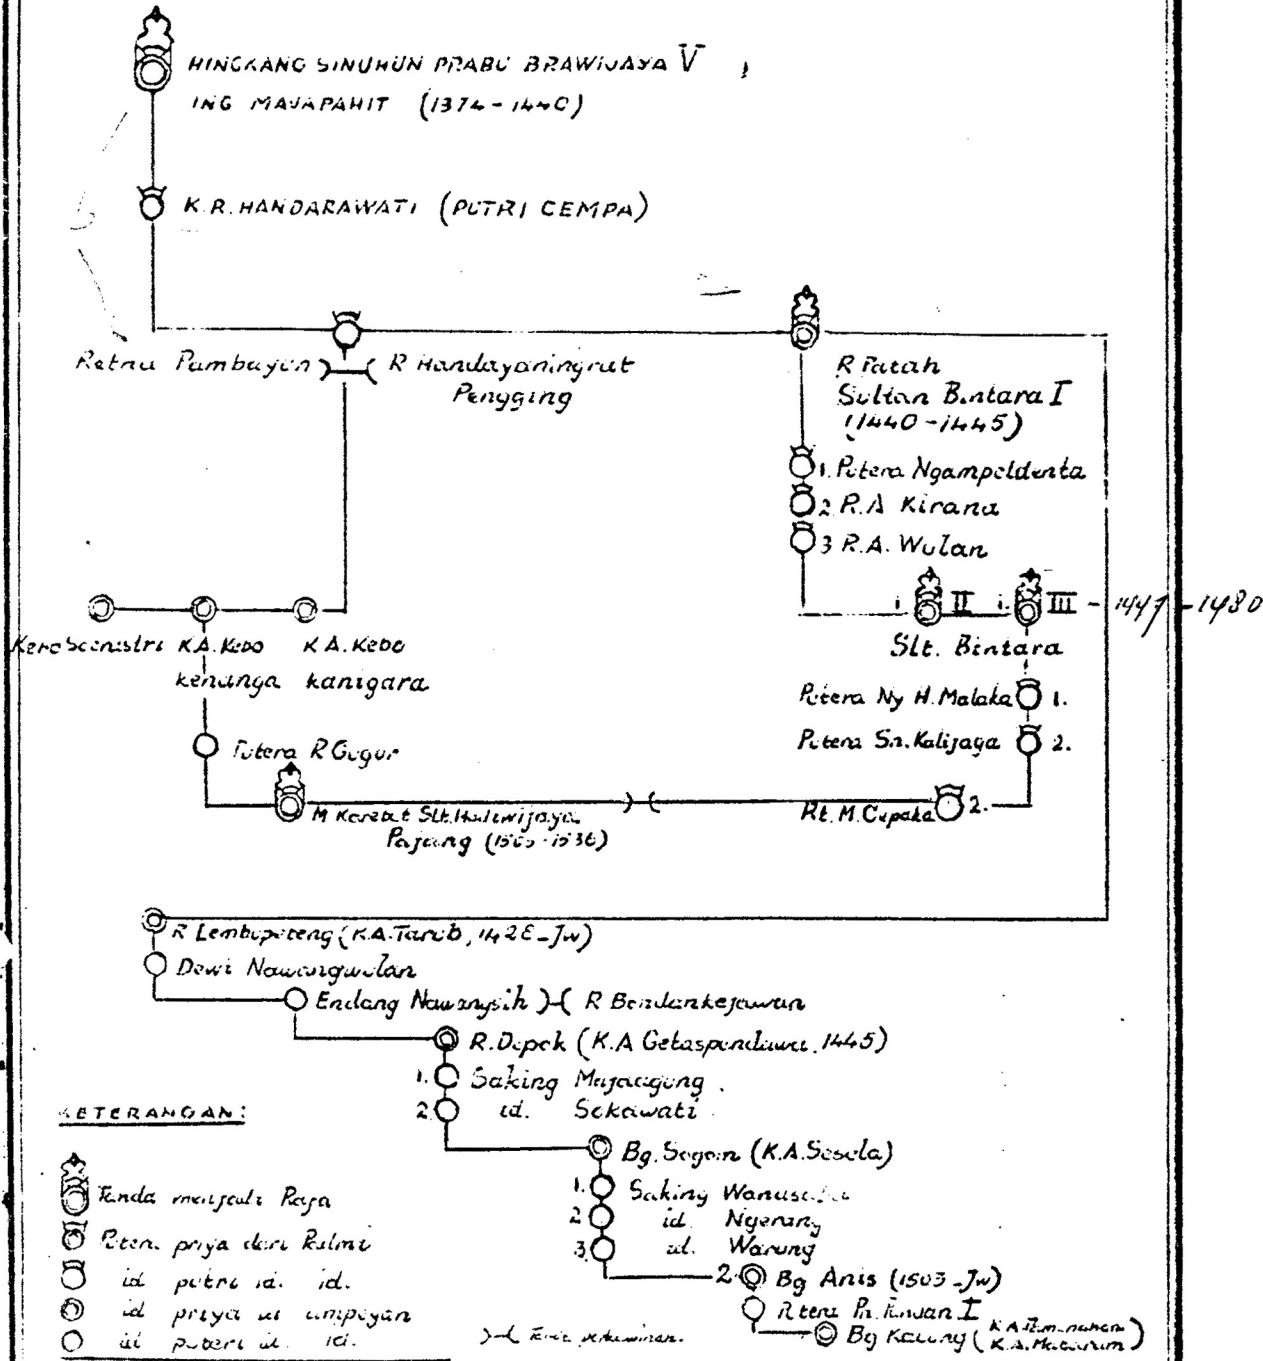 HINGKANG SINUHUN PRABU BRAWIJAYA V
ING MAJAPAHIT (1374-1440)
K.R. HANDARAWATI (PUTRI CEMPA)
Retna Pambayun R Handayaningrat
Pengging
R Patah
Sultan Bintara I
(1440-1445)
1. Putera Ngampeldenta
2 R.A Kirana
3 R.A. Wulan
II III - 1447 - 1480
Slt. Bintara
K.A. Kebo K A. Kebo
kenanga kanigara
Putera Ny H. Malaka 1.
Putera Sn. Kalijaga 2.
Putera R Gugur
M Karebet Slt. Hadiwijaya
Pajang
Rt. M. Cepaka 2.
R Lembupeteng (K.A. Tarub, 1428-Jw)
Dewi Nawangwulan
Endang Nawangsih R Bondankejawan
R. Depok (K.A Getaspendawa, 1445)
1. Saking Majaagung
2. id. Sokawati
Bg. Sogom (K.A. Sesela)
1. Saking
2 id. Ngerang
3. id. Warung
2. Bg Anis (1503-Jw)
I
Bg Kacung (K.A. Pamanahan
K.A. Mataram)
KETERANGAN:
Tanda menjadi Raja
Putera priya dari Padmi
id putri id. id.
id priya id ampeyan
id puteri id. id.
Tanda perkawinan.